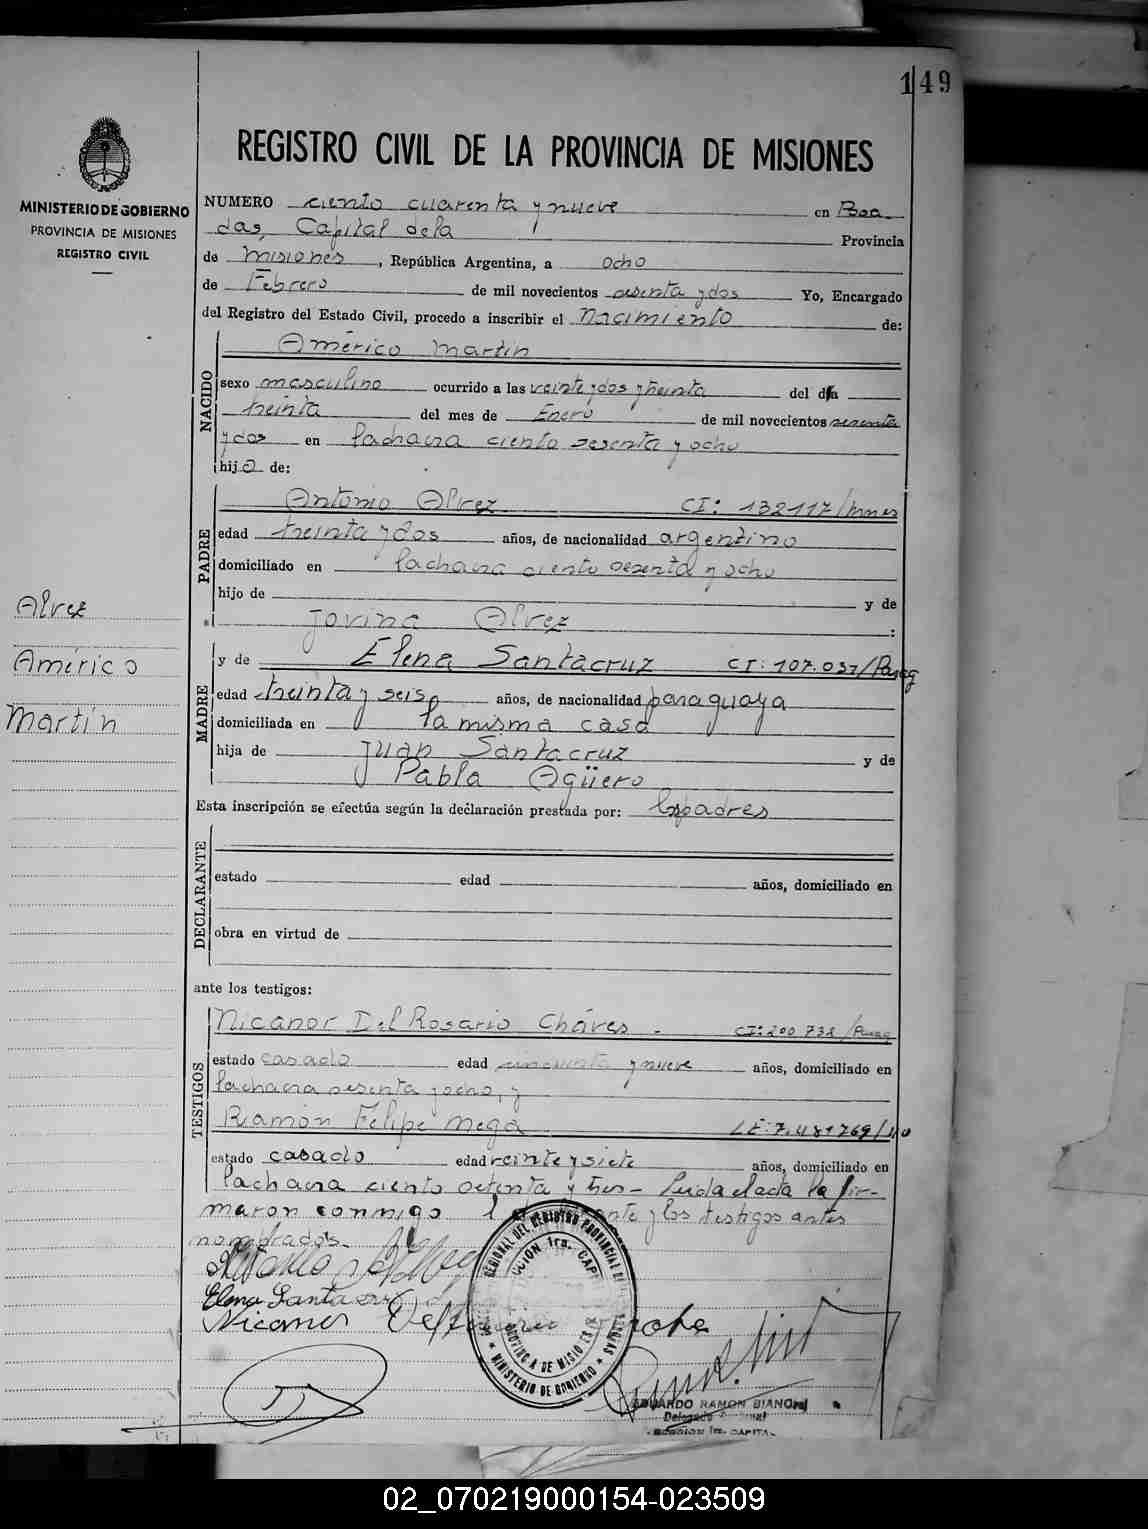 149
REGISTRO CIVIL DE LA PROVINCIA DE MISIONES
MINISTERIO DE GOBIERNO
PROVINCIA DE MISIONES
REGISTRO CIVIL
NUMERO ciento cuarenta y nueve en Posa
das, Capital de la Provincia
de Misiones, República Argentina, a ocho
de Febrero de mil novecientos sesenta y dos Yo, Encargado
del Registro del Estado Civil, procedo a inscribir el Nacimiento de:
NACIDO
Américo Martin
sexo masculino ocurrido a las veinte y dos y treinta del día
treinta del mes de Enero de mil novecientos sesenta
y dos en la chacra ciento sesenta y ocho
hijo de:
PADRE
Antonio Alvez CI: 132117/Mnes
edad treinta y dos años, de nacionalidad argentino
domiciliado en la chacra ciento sesenta y ocho
hijo de y de
Jovina Alvez :
Alvez
Américo
Martin
MADRE
y de Elena Santacruz CI: 107.037/Parag
edad treinta y seis años, de nacionalidad paraguaya
domiciliada en la misma casa
hija de Juan Santacruz y de
Pabla Agüero
Esta inscripción se efectúa según la declaración prestada por: los padres
DECLARANTE
estado edad años, domiciliado en
obra en virtud de
ante los testigos:
TESTIGOS
Nicanor Del Rosario Cháves. CI: 200 732/Parag
estado casado edad cincuenta y nueve años, domiciliado en
la chacra sesenta y ocho, y
Ramón Felipe Mega LE: 7.481769/
estado casado edad veinte y siete años, domiciliado en
la chacra ciento setenta y tres - Leida el acta la fir-
maron conmigo y los testigos antes
nombrados.
Antonio Alvez
Elena Santacruz
Nicanor
REGIONAL DEL REGISTRO PROVINCIAL
PROVINCIA DE MISIONES
MINISTERIO DE GOBIERNO
EDUARDO RAMON BIANCHI
Delegado
1ra. CAPITAL
02_070219000154-023509